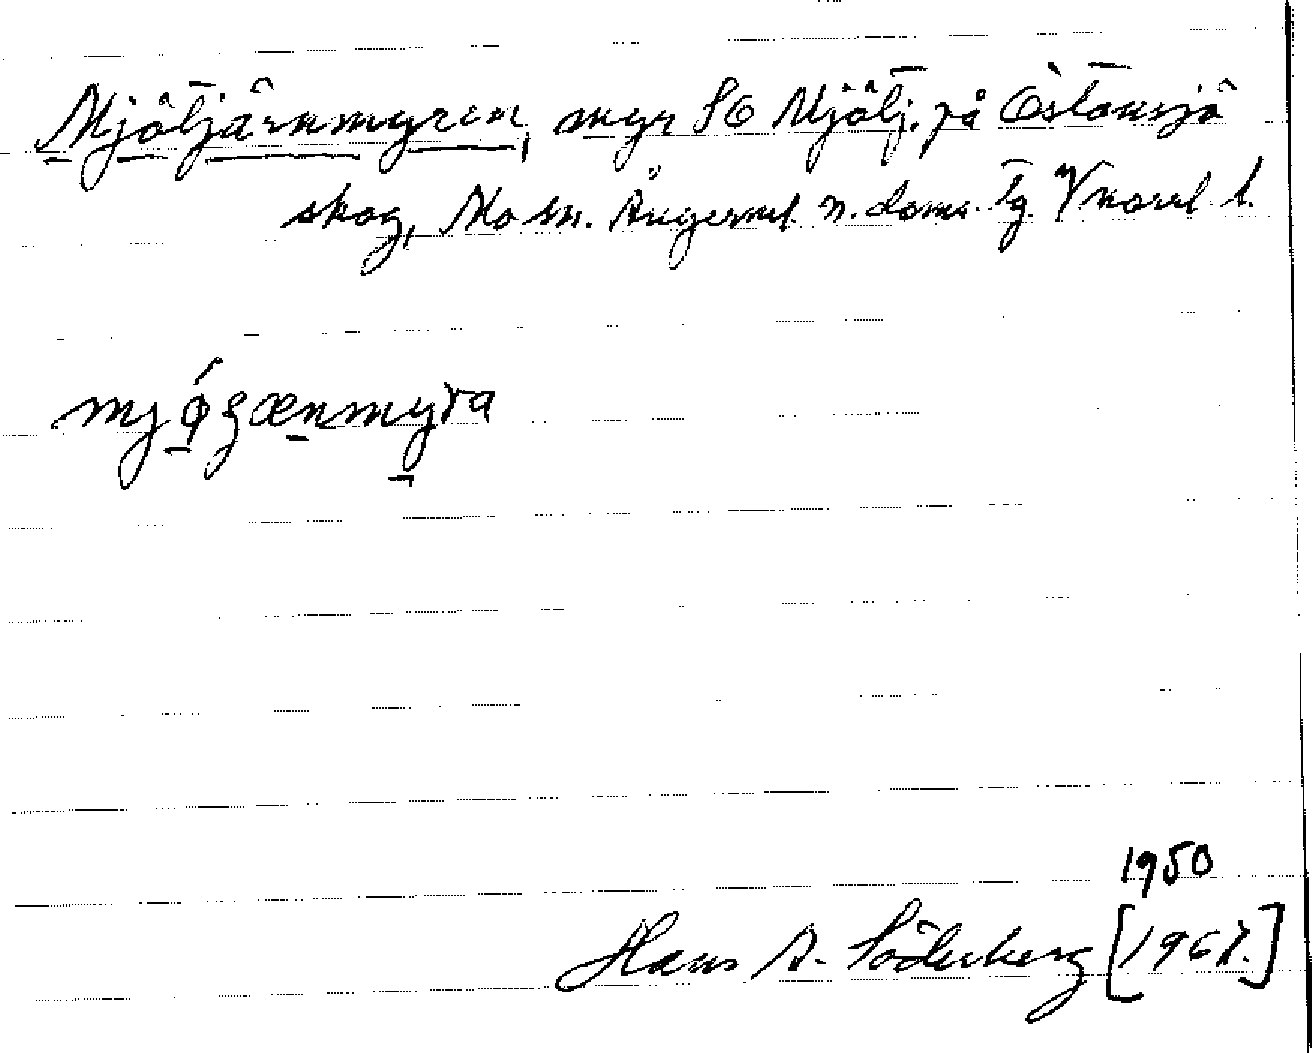 Mjötjärnmyren, myr SO Mjötj. på Östansjö
skog, Mo sn. Ångerml. n. doms. tg Vnorrl l.
mjǿʒænmyra
1950
Hans A. Söderberg [1967.]